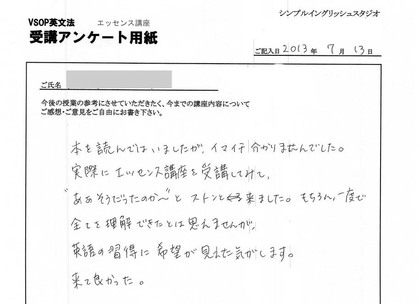 シンプルイングリッシュスタジオ
VSOP英文法 エッセンス講座
受講アンケート用紙
ご記入日 2013年 7月 13日
ご氏名
今後の授業の参考にさせていただきたく、今までの講座内容について
ご感想・ご意見をご自由にお書き下さい。
本を読んではいましたが、イマイチ分かりませんでした。
実際にエッセンス講座を受講してみて、
"ああそうだったのか〜"とストンと来ました。もちろん、一度で
全てを理解できたとは思えませんが、
英語の習得に希望が見えた気がします。
来て良かった。